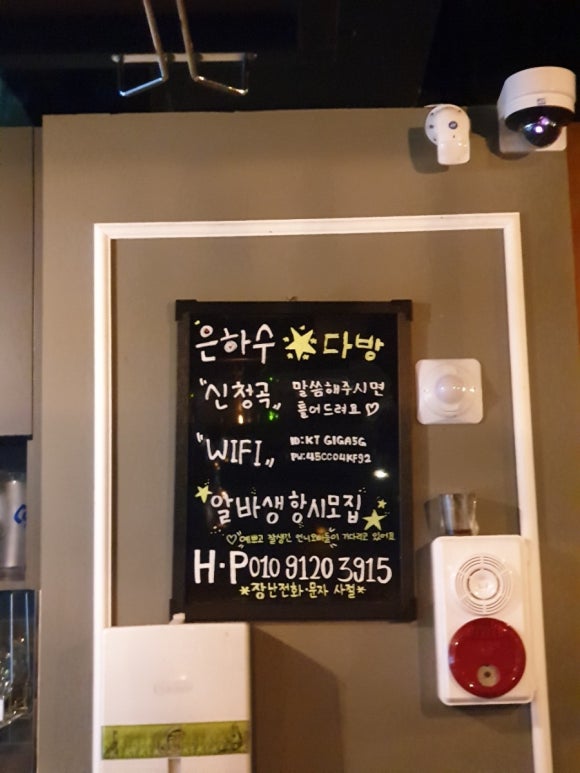 은하수 다방
"신청곡" 말씀해주시면
틀어드려요 ♡
"WIFI" ID:KT GIGA5G
PW:45CC04KF92
알바생 항시모집
♡예쁘고 잘생긴 언니오빠들이 기다리고 있어요
H·P 010 9120 3915
*장난전화·문자 사절*